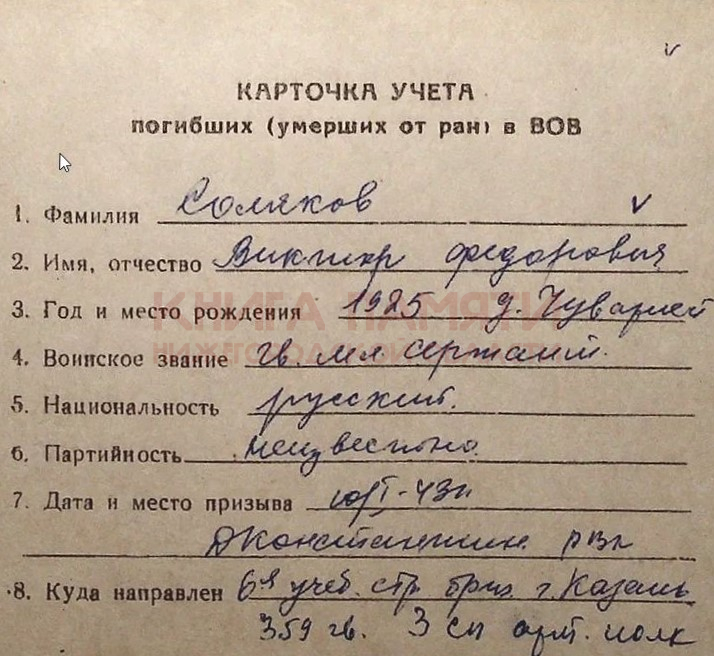 КАРТОЧКА УЧЕТА
погибших (умерших от ран) в ВОВ
1. Фамилия Соляков
2. Имя, отчество Виктор Федорович
3. Год и место рождения 1925 д. Чувариеи
КНИГА ПАМЯТИ
4. Воинское звание гв. мл. сержант.
5. Национальность русский.
6. Партийность неизвестно
7. Дата и место призыва
ДКонстантин. рвк
8. Куда направлен 6я учеб. стр. бриг. г. Казань
359 гв. 3 сп арт. полк